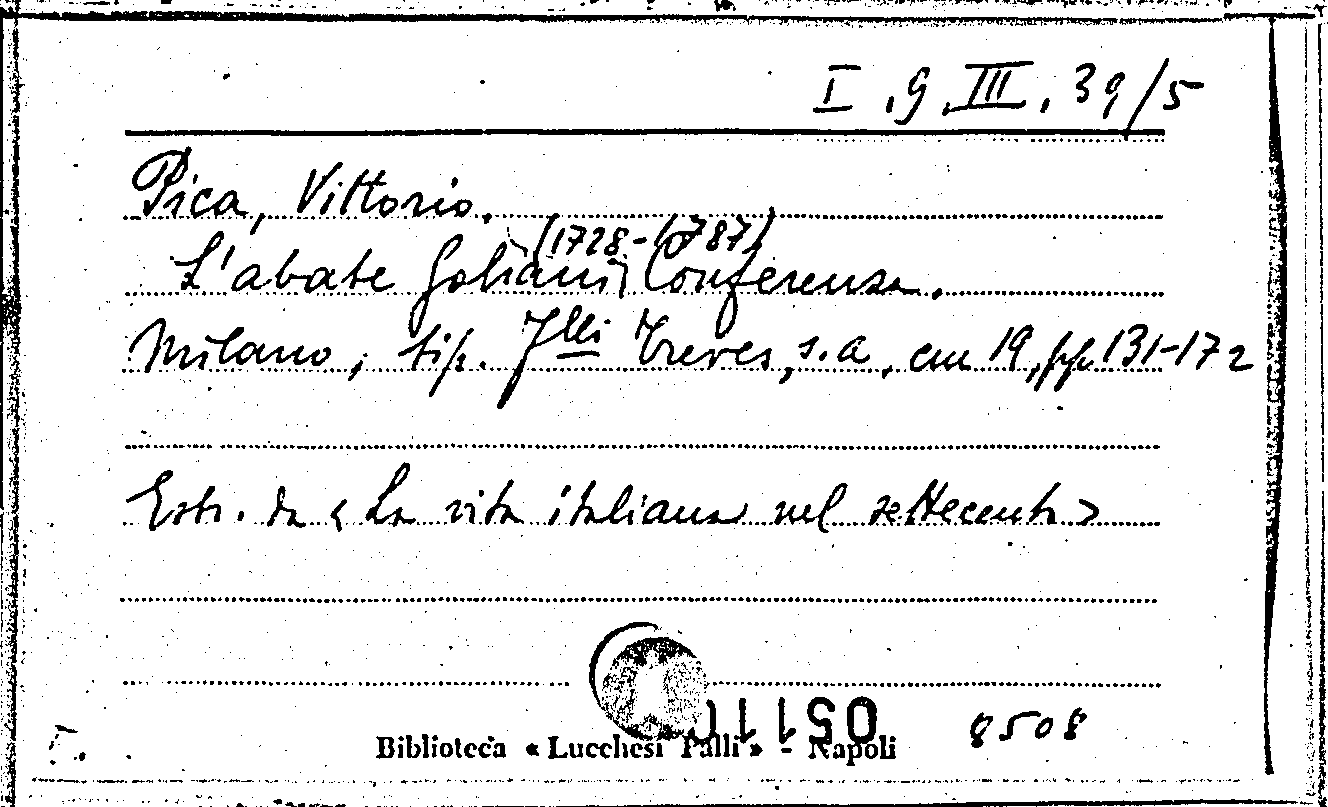 I .9.III. 39/5
Pica, Vittorio.
(1728-1787)
L'abate Galiani Conferenza.
Milano, tip. F.lli Treves, s.a, cm 19, pp. 131-172
Estr. da «La vita italiana nel settecento>
0511
8508
Biblioteca « Lucchesi Palli » - Napoli